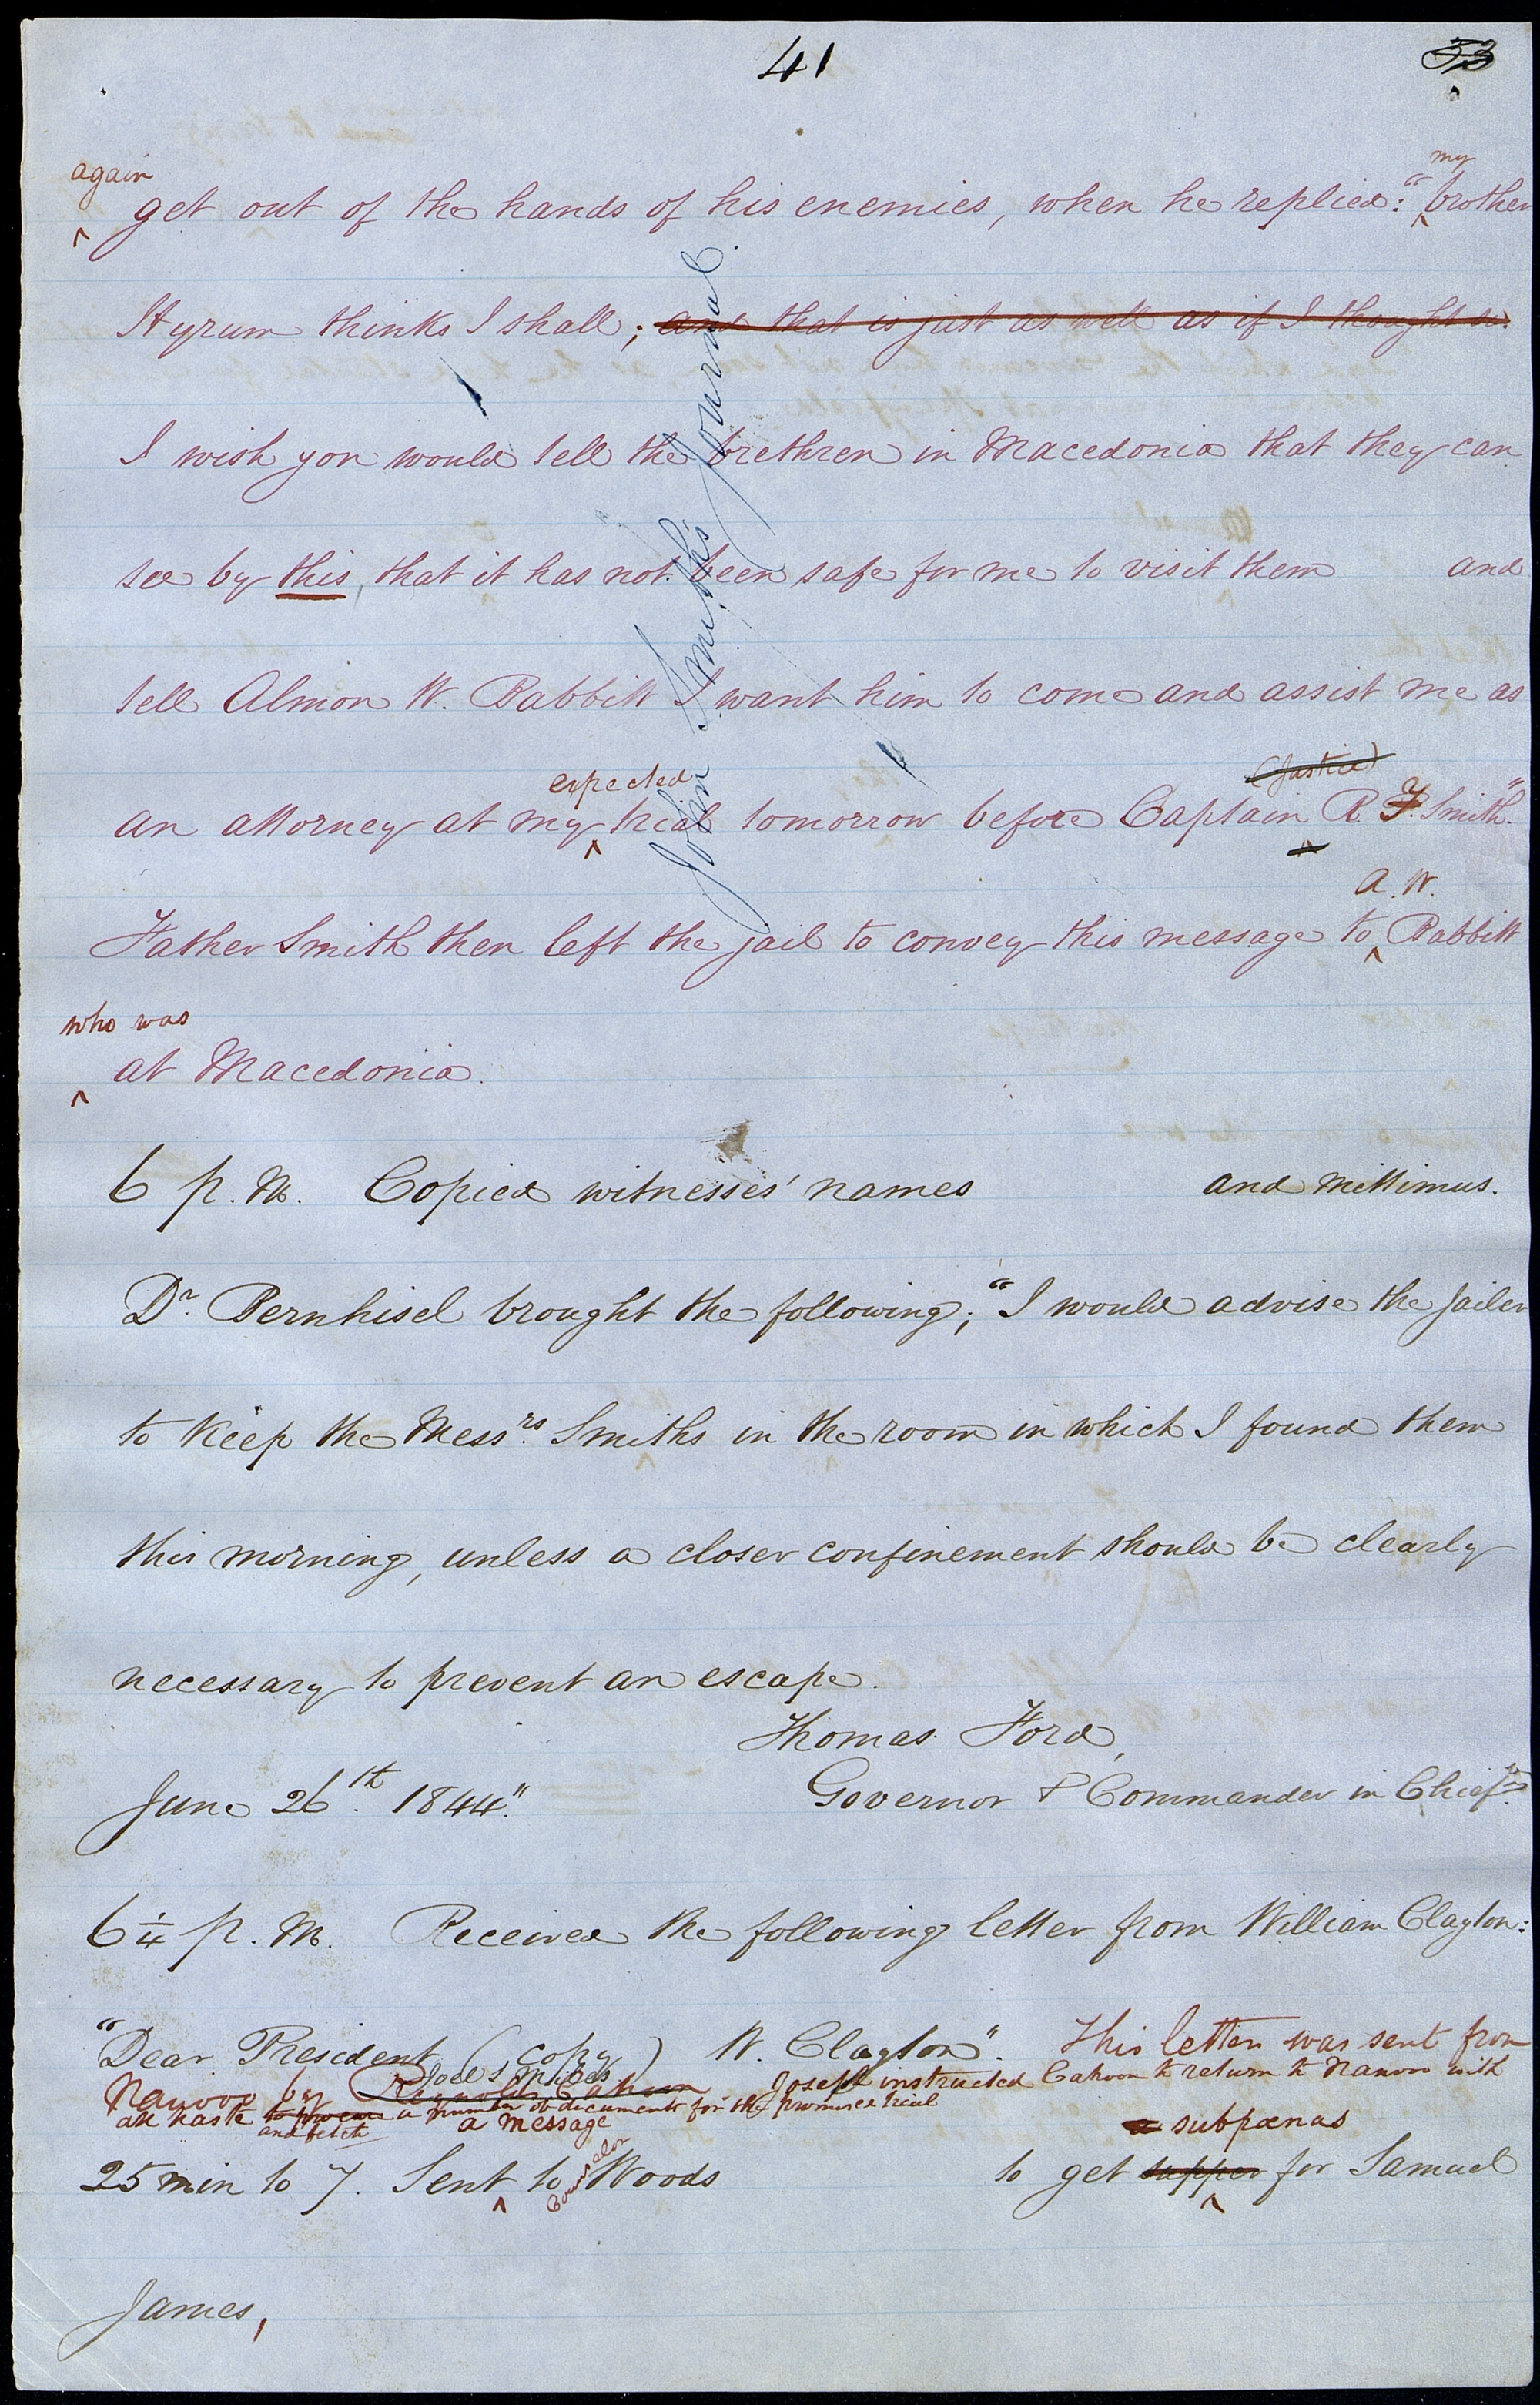 41
53
again
my
get out of the hands of his enemies, when he replied: "brother
Hyrum thinks I shall; and that is just as well as if I thought so.
I wish you would tell the brethren in Macedonia that they can
see by this, that it has not been safe for me to visit them and
tell Almon W. Babbitt I want him to come and assist me as
expected
(Justice)
an attorney at my trial tomorrow before Captain R. F. Smith."
A. W.
Father Smith then left the jail to convey this message to Babbitt
who was
at Macedonia.
John Smith's Journal.
6 p. M. Copied witnesses' names and mittimus.
Dr. Bernhisel brought the following; "I would advise the Jailer
to keep the Messrs. Smiths in the room in which I found them
this morning, unless a closer confinement should be clearly
necessary to prevent an escape.
Thomas Ford,
June 26th. 1844." Governor & Commander in Chief."
6 1/4 p. M. Received the following letter from William Clayton:
"Dear President (copy) W. Clayton". This letter was sent from
Joel S. Miles
Nauvoo by Reynolds Cahoon Joseph instructed Cahoon to return to Nauvoo with
all haste to procure a number of documents for the promised trial
and fetch
a message
a subpœnas
25 min to 7. Sent to Woods to get supper for Samuel
Counselor
James,